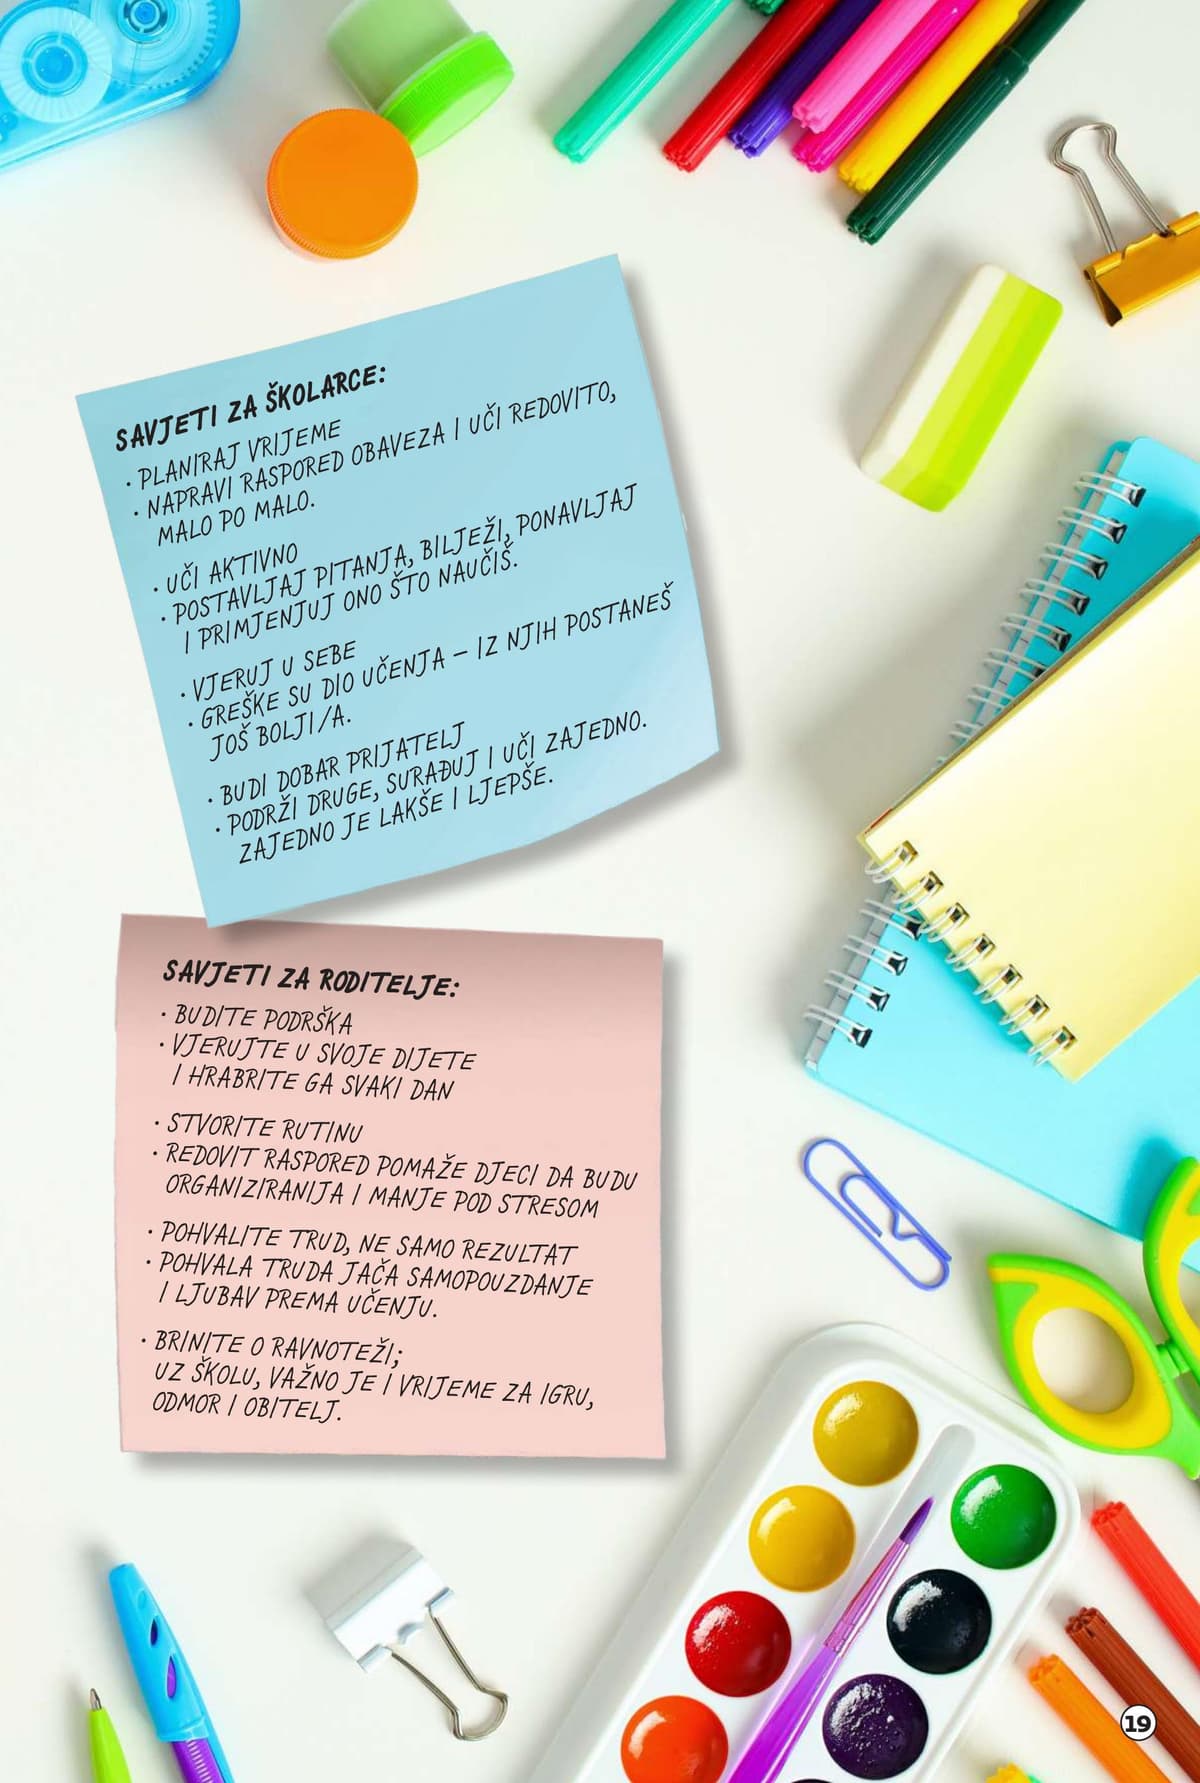 SAVJETI ZA ŠKOLARCE:
· PLANIRAJ VRIJEME
· NAPRAVI RASPORED OBAVEZA I UČI REDOVITO,
MALO PO MALO.
· UČI AKTIVNO
· POSTAVLJAJ PITANJA, BILJEŽI, PONAVLJAJ
I PRIMJENJUJ ONO ŠTO NAUČIŠ.
· VJERUJ U SEBE
· GREŠKE SU DIO UČENJA – IZ NJIH POSTANEŠ
JOŠ BOLJI/A.
· BUDI DOBAR PRIJATELJ
· PODRŽI DRUGE, SURAĐUJ I UČI ZAJEDNO.
ZAJEDNO JE LAKŠE I LJEPŠE.
SAVJETI ZA RODITELJE:
· BUDITE PODRŠKA
· VJERUJTE U SVOJE DIJETE
I HRABRITE GA SVAKI DAN
· STVORITE RUTINU
· REDOVIT RASPORED POMAŽE DJECI DA BUDU
ORGANIZIRANIJA I MANJE POD STRESOM
· POHVALITE TRUD, NE SAMO REZULTAT
· POHVALA TRUDA JAČA SAMOPOUZDANJE
I LJUBAV PREMA UČENJU.
· BRINITE O RAVNOTEŽI;
UZ ŠKOLU, VAŽNO JE I VRIJEME ZA IGRU,
ODMOR I OBITELJ.
19